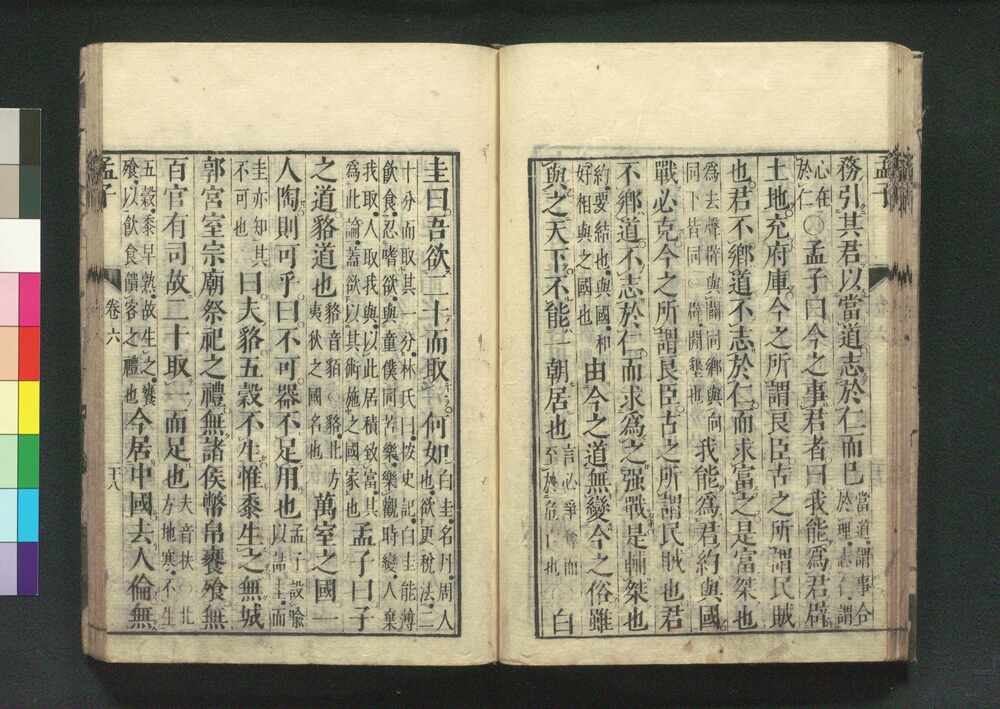 孟子
務引其君以當道志於仁而已當道謂事合於理志仁謂
心在於仁○孟子曰今之事君者曰我能爲君辟
土地充府庫今之所謂良臣古之所謂民賊
也君不鄉道不志於仁而求富之是富桀也
爲去聲辟與闢同鄉與向同下皆同○辟開墾也我能爲君約與國
戰必克今之所謂良臣古之所謂民賊也君
不鄉道不志於仁而求爲之强戰是輔桀也
約要結也與國和好相與之國也由今之道無變今之俗雖
與之天下不能一朝居也言必爭奪而至於危亡也○白
圭曰吾欲二十而取一何如白圭名丹周人也欲更稅法二
十分而取其一分林氏曰按史記白圭能薄飲食忍嗜欲與童僕同苦樂樂觀時變人棄
我取人取我與以此居積致富其爲此論蓋欲以其術施之國家也孟子曰子
之道貉道也貉音貊○貉北方夷狄之國名也萬室之國一
人陶則可乎曰不可器不足用也孟子設喩以詰圭而
圭亦知其不可也曰夫貉五穀不生惟黍生之無城
郭宮室宗廟祭祀之禮無諸侯幣帛饔飧無
百官有司故二十取一而足也夫音扶○北方地寒不生
五穀黍早熟故生之饔飧以飲食饋客之禮也今居中國去人倫無
孟子
卷六
十八